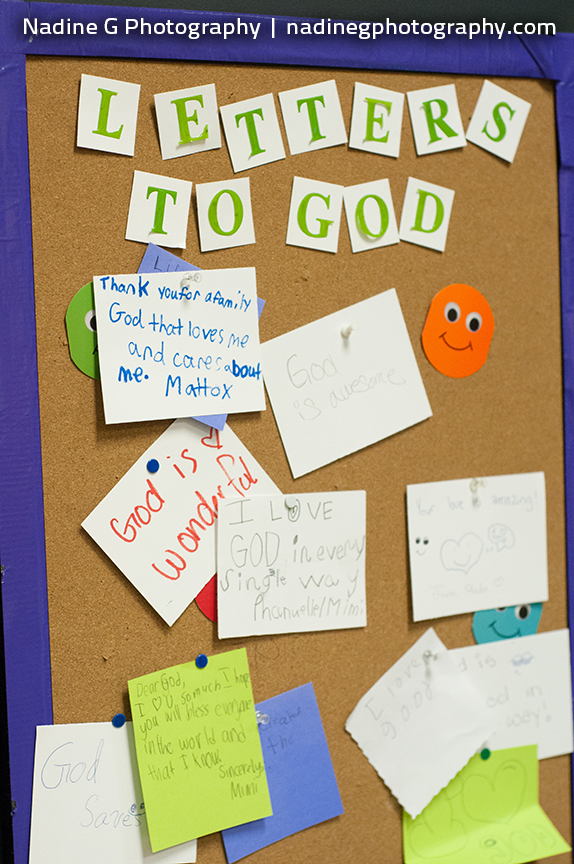 Nadine G Photography | nadinegphotography.com
LETTERS
TO GOD
Thank you for a family
God that loves me
and cares about
me. Mattox
God
is awesome
God is
wonderful
I LOVE
GOD in every
single way
Phanuelle/Mimi
Your love is amazing!
Dear God,
I ♡ U so much I hope
you will bless everyone
in the world and
that I know
Sincerely,
Mimi
the
I love
God
God in
way!
God
Saves